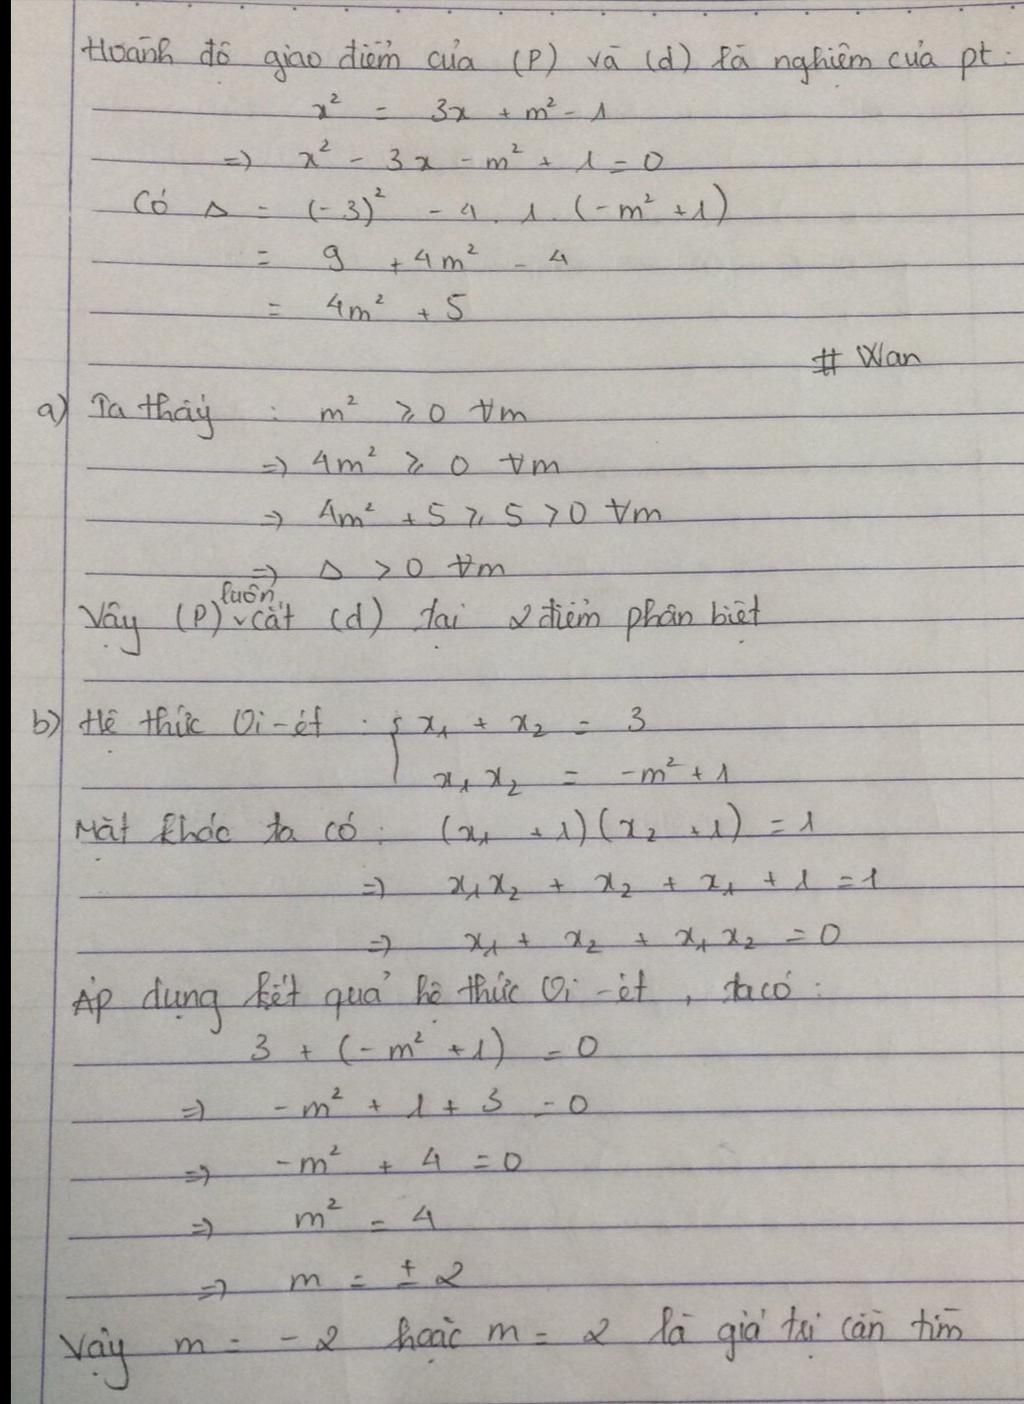 Hoành độ giao điểm của (P) và (d) là nghiệm của pt:
x² = 3x + m² - 1
=> x² - 3x - m² + 1 = 0
Có Δ = (-3)² - 4 . 1 . (-m² + 1)
= 9 + 4m² - 4
= 4m² + 5
# Wan
a) Ta thấy : m² ⩾ 0 ∀m
=> 4m² ⩾ 0 ∀m
=> 4m² + 5 ⩾ 5 > 0 ∀m
=> Δ > 0 ∀m
Vậy (P) luôn cắt (d) tại 2 điểm phân biệt
b) Hệ thức Vi-ét : { x₁ + x₂ = 3
x₁x₂ = -m² + 1
Mặt khác ta có : (x₁ + 1)(x₂ + 1) = 1
=> x₁x₂ + x₂ + x₁ + 1 = 1
=> x₁ + x₂ + x₁x₂ = 0
Áp dụng kết quả hệ thức Vi-ét, ta có :
3 + (-m² + 1) = 0
=> -m² + 1 + 3 = 0
=> -m² + 4 = 0
=> m² = 4
=> m = ± 2
Vậy m = -2 hoặc m = 2 là giá trị cần tìm